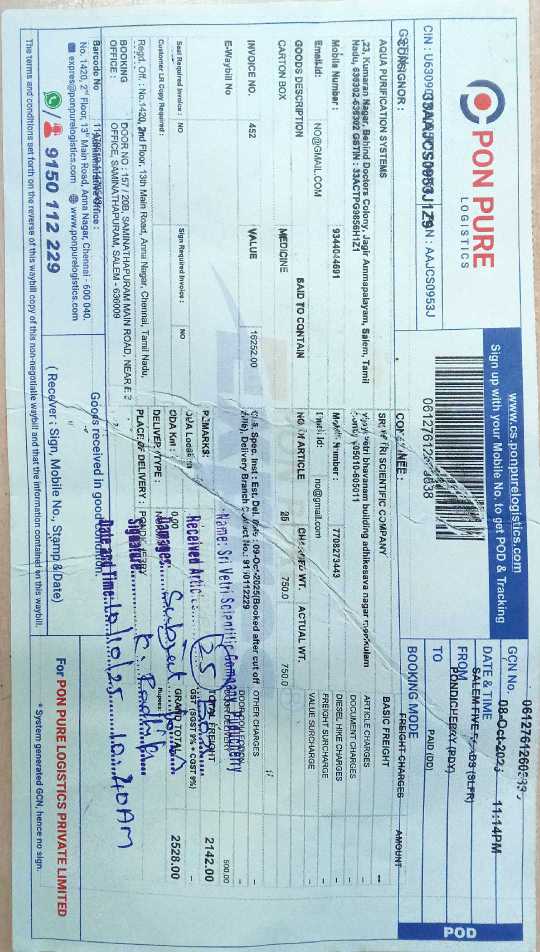 PON PURE
LOGISTICS
www.cs.ponpurelogistics.com
Sign up with your Mobile No. to get POD & Tracking
GCN No.
DATE & TIME 08-Oct-2025 11:14PM
FROM SALEM FIVE ROADS (SLFR)
TO PONDICHERRY (PDY)
BOOKING MODE PAID (OD)
POD
GSTIN : 33AAJCS0953J1Z9
PAN : AAJCS0953J
CONSIGNOR :
AQUA PURIFICATION SYSTEMS
,23, Kumaran Nagar, Behind Doctors Colony, Jagir Ammapalayam, Salem, Tamil
Nadu, 636302-636302 GSTIN : 33ACTPG9856H1Z1
Mobile Number : 9344044691
Email-Id: NO@GMAIL.COM
CONSIGNEE :
SRI VETRI SCIENTIFIC COMPANY
vijay vetri bhavanam building adhikesava nagar moolkulam
Mobile Number : 7708273443
Email Id: no@gmail.com
GOODS DESCRIPTION SAID TO CONTAIN NO OF ARTICLE CHARGED WT. ACTUAL WT.
CARTON BOX MEDICINE 25 750.0 750.0
INVOICE NO. 452 VALUE 16252.00
E-Waybill No
Seal Required Invoice : NO Sign Required Invoice : NO
Customer LR Copy Required :
Cus. Spec. Inst : Est. Del. Date : 09-Oct-2025(Booked after cut off
time), Delivery Branch Contact No: 91/0112229
REMARKS:
ODA Location
ODA Km : 0.00
DELIVERY TYPE :
PLACE OF DELIVERY : PONDICHERRY
FREIGHT CHARGES AMOUNT
BASIC FREIGHT --
ARTICLE CHARGES -
DOCUMENT CHARGES
DIESEL HIKE CHARGES
FREIGHT SURCHARGE
VALUE SURCHARGE
OTHER CHARGES
DOOR DELIVERY 500.00
TOTAL FREIGHT 2142.00
GST (SGST 9% + CGST 9%) -
GRAND TOTAL 2528.00
Rupees
Name: Sri Vetri Scientific Company Puducherry
Received Article 25
Damages Subject
Signature
Date and Time 10/10/25 10.40AM
Regd. Off. : No.1420, 2nd Floor, 13th Main Road, Anna Nagar, Chennai, Tamil Nadu,
BOOKING OFFICE : DOOR NO : 157 / 20B, SAMINATHAPURAM MAIN ROAD, NEAR E B
OFFICE, SAMINATHAPURAM, SALEM - 636009
Barcode No
Administrative Office :
No. 1420, 2nd Floor, 13th Main Road, Anna Nagar, Chennai - 600 040.
expres@ponpurelogistics.com www.ponpurelogistics.com
9150 112 229
Goods received in good condition.
( Receiver : Sign, Mobile No., Stamp & Date)
For PON PURE LOGISTICS PRIVATE LIMITED
* System generated GCN, hence no sign.
The terms and conditions set forth on the reverse of this waybill copy of this non-negotiable waybill and that the information contained on this waybill.